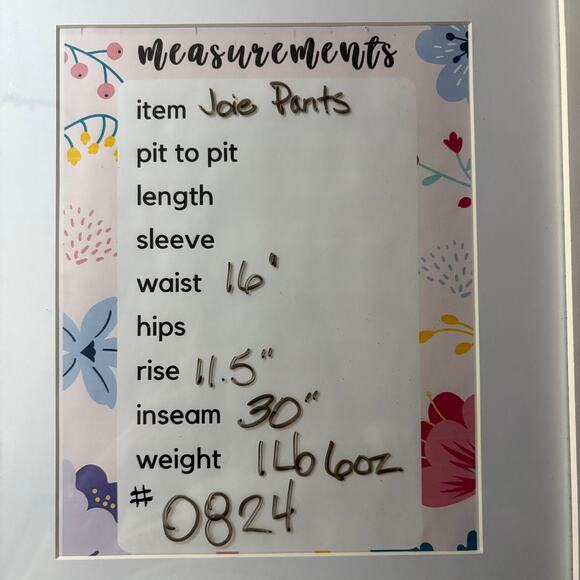 measurements
item Joie Pants
pit to pit
length
sleeve
waist 16"
hips
rise 11.5"
inseam 30"
weight 1Lb 6oz
# 0824